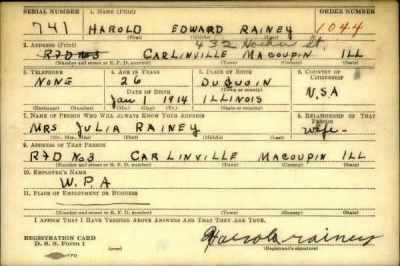 SERIAL NUMBER 1. NAME (Print) ORDER NUMBER
741 HAROLD EDWARD RAINEY 1044
(First) (Middle) (Last)
2. ADDRESS (Print) 432 St.
RFD No3 CARLINVILLE MACOUPIN ILL
(Number and street or R. F. D. number) (Town) (County) (State)
3. TELEPHONE 4. AGE IN YEARS 5. PLACE OF BIRTH 6. COUNTRY OF CITIZENSHIP
NONE 26 DUQUOIN
(Town or county)
DATE OF BIRTH
Jan 1914 ILLINOIS U.S.A
(Exchange) (Number) (Mo.) (Day) (Yr.) (State or country)
7. NAME OF PERSON WHO WILL ALWAYS KNOW YOUR ADDRESS 8. RELATIONSHIP OF THAT PERSON
MRS JULIA RAINEY wife
(Mr., Mrs., Miss) (First) (Middle) (Last)
9. ADDRESS OF THAT PERSON
RFD No3 CARLINVILLE MACOUPIN ILL
(Number and street or R. F. D. number) (Town) (County) (State)
10. EMPLOYER'S NAME
W.P.A
11. PLACE OF EMPLOYMENT OR BUSINESS
(Number and street or R. F. D. number) (Town) (County) (State)
I AFFIRM THAT I HAVE VERIFIED ABOVE ANSWERS AND THAT THEY ARE TRUE.
REGISTRATION CARD
D. S. S. Form 1 Harold rainey
(Registrant's signature)